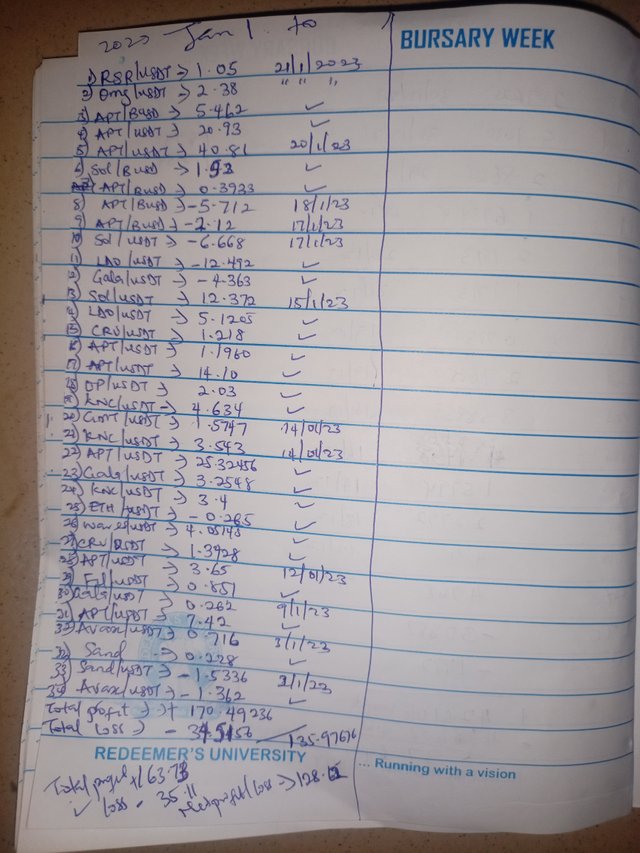 2023 Jan 1. to
BURSARY WEEK
1) RSR/USDT → 1.05 21/1/2023
2) Omg/USDT → 2.38 " " "
3) APT/Busd → 5.462 ✓
4) APT/USDT → 20.93 ✓
5) APT/USDT → 40.81 20/1/23
6) Sol/Busd → 1.93 ✓
APT/Busd → 0.3933 ✓
8) APT/Busd → -5.712 18/1/23
9) APT/Busd → -2.12 17/1/23
10) Sol/USDT → -6.668 17/1/23
11) LDO/USDT → -12.492 ✓
12) Gala/USDT → -4.363 ✓
13) Sol/USDT → 12.372 15/1/23
14) LDO/USDT → 5.1205 ✓
15) CRV/USDT → 1.218 ✓
16) APT/USDT → 1.1960 ✓
17) APT/USDT → 14.10 ✓
18) OP/USDT → 2.03 ✓
19) KNC/USDT → 4.634 ✓
20) GMT/USDT → 1.5747 14/01/23
21) KNC/USDT → 3.543 14/01/23
22) APT/USDT → 25.32456 ✓
23) Gala/USDT → 3.2548 ✓
24) KNC/USDT → 3.4 ✓
25) ETH/USDT → -0.265 ✓
26) Waves/USDT → 4.05145 ✓
27) CRV/USDT → 1.3928 ✓
28) APT/USDT → 3.65 12/01/23
29) Fil/USDT → 0.851 ✓
30) Gala/USDT → 0.262 9/1/23
31) APT/USDT → 7.42 ✓
32) Avax/USDT → 0.716 3/1/23
32) Sand → 0.228 ✓
33) Sand/USDT → -1.5336 2/1/23
34) Avax/USDT → -1.362 ✓
Total profit → + 170.49236
Total Loss → - 135.97676
REDEEMER'S UNIVERSITY
... Running with a vision
Total profit
✓ loss - 35.11 profit/loss → 128.